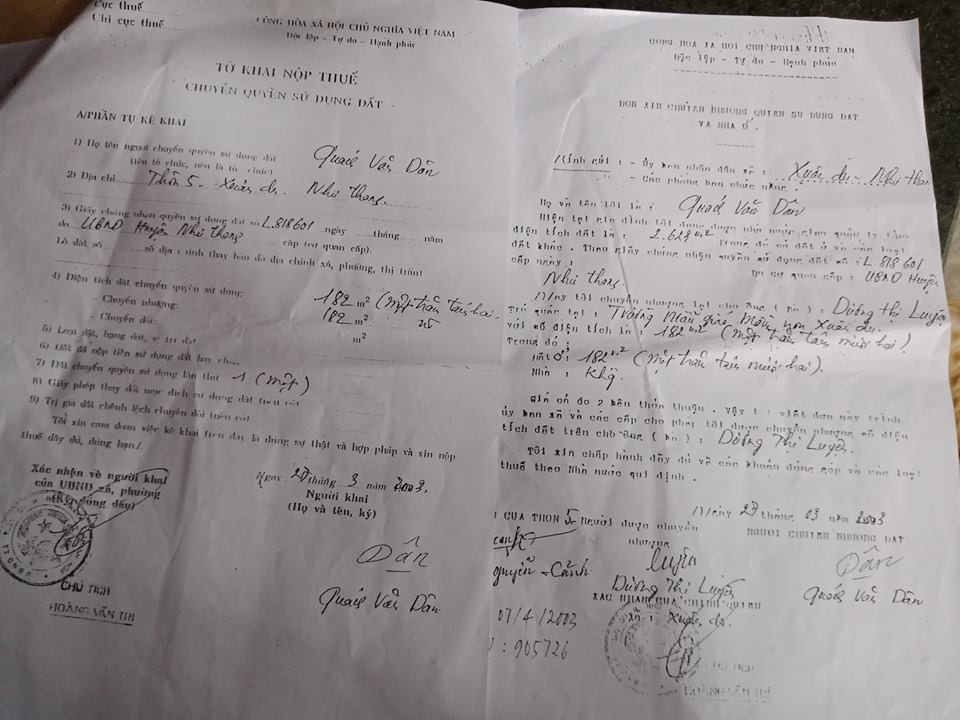 Cục thuế
Chi cục thuế
CỘNG HÒA XÃ HỘI CHỦ NGHĨA VIỆT NAM
Độc lập - Tự do - Hạnh phúc
TỜ KHAI NỘP THUẾ
CHUYỂN QUYỀN SỬ DỤNG ĐẤT
A/PHẦN TỰ KÊ KHAI
1) Họ tên người chuyển quyền sử dụng đất Quách Văn Dân
(tên tổ chức, nếu là tổ chức)
2) Địa chỉ Thôn 5 - Xuân du. Như thanh
3) Giấy chứng nhận quyền sử dụng đất số L.818601 ngày tháng năm
do UBND Huyện Như thanh cấp (cơ quan cấp).
Lô đất số số địa
4) Diện tích đất chuyển quyền sử dụng:
- Chuyển nhượng: 182 m² (Một trăm tám hai
- Chuyển đổi: 182 m²
m²
5) Loại đất, hạng đất, vị trí đất
6) Đất đã nộp tiền sử dụng đất hay chưa
7) Đất chuyển quyền sử dụng lần thứ 1 (một)
8) Giấy phép thay đổi mục đích sử dụng đất
9) Trị giá đất chênh lệch chuyển đổi
Tôi xin cam đoan việc kê khai trên đây là đúng sự thật và hợp pháp và xin nộp
thuế đầy đủ, đúng hạn/.
Xác nhận về người khai
của UBND xã, phường
(Ký, đóng dấu)
Ngày 28 tháng 3 năm 2003.
Người khai
(Họ và tên, ký)
Dân
Quách Văn Dân
CHỦ TỊCH
HOÀNG VĂN THI
CỘNG HÒA XÃ HỘI CHỦ NGHĨA VIỆT NAM
Độc lập - Tự do - Hạnh phúc
ĐƠN XIN CHUYỂN NHƯỢNG QUYỀN SỬ DỤNG ĐẤT
VÀ NHÀ Ở.
Kính gửi: - Ủy ban nhân dân xã: Xuân du - Như thanh
- Các phòng ban chức năng.
Họ và tên tôi là: Quách Văn Dân
Hiện tại gia đình tôi đang được nhà nước giao quản lý
diện tích đất là: 2.628 m² Trong đó có đất ở và các loại
đất khác. Theo giấy chứng nhận quyền sử dụng đất số: L.818601
cấp ngày: do cơ quan cấp: UBND Huyện
Như thanh
Nay tôi chuyển nhượng lại cho ông (bà): Dương Thị Luyện
Trú quán tại: Trường Mẫu giáo Mầm non Xuân du.
với số diện tích là: 182 m² (Một trăm tám mươi hai)
Trong đó:
Đất ở: 182 m² (Một trăm tám mươi hai).
Nhà: Khg.
Giá cả do 2 bên thỏa thuận. Vậy tôi viết đơn này trình
ủy ban xã và các cấp cho phép tôi được chuyển nhượng số diện
tích đất trên cho ông (bà): Dương Thị Luyện.
Tôi xin chấp hành đầy đủ về các khoản đóng góp và các loại
thuế theo Nhà nước qui định.
Ngày 28 tháng 03 năm 2003
CỦA THÔN 5
Người được chuyển
nhượng
NGƯỜI CHUYỂN NHƯỢNG ĐẤT
Luyện
Dân
Cảnh
Dương Thị Luyện
Quách Văn Dân
XÁC NHẬN CỦA CHÍNH QUYỀN
Xã: Xuân du.
07/4/2003
: 905726
CHỦ TỊCH
HOÀNG VĂN THI